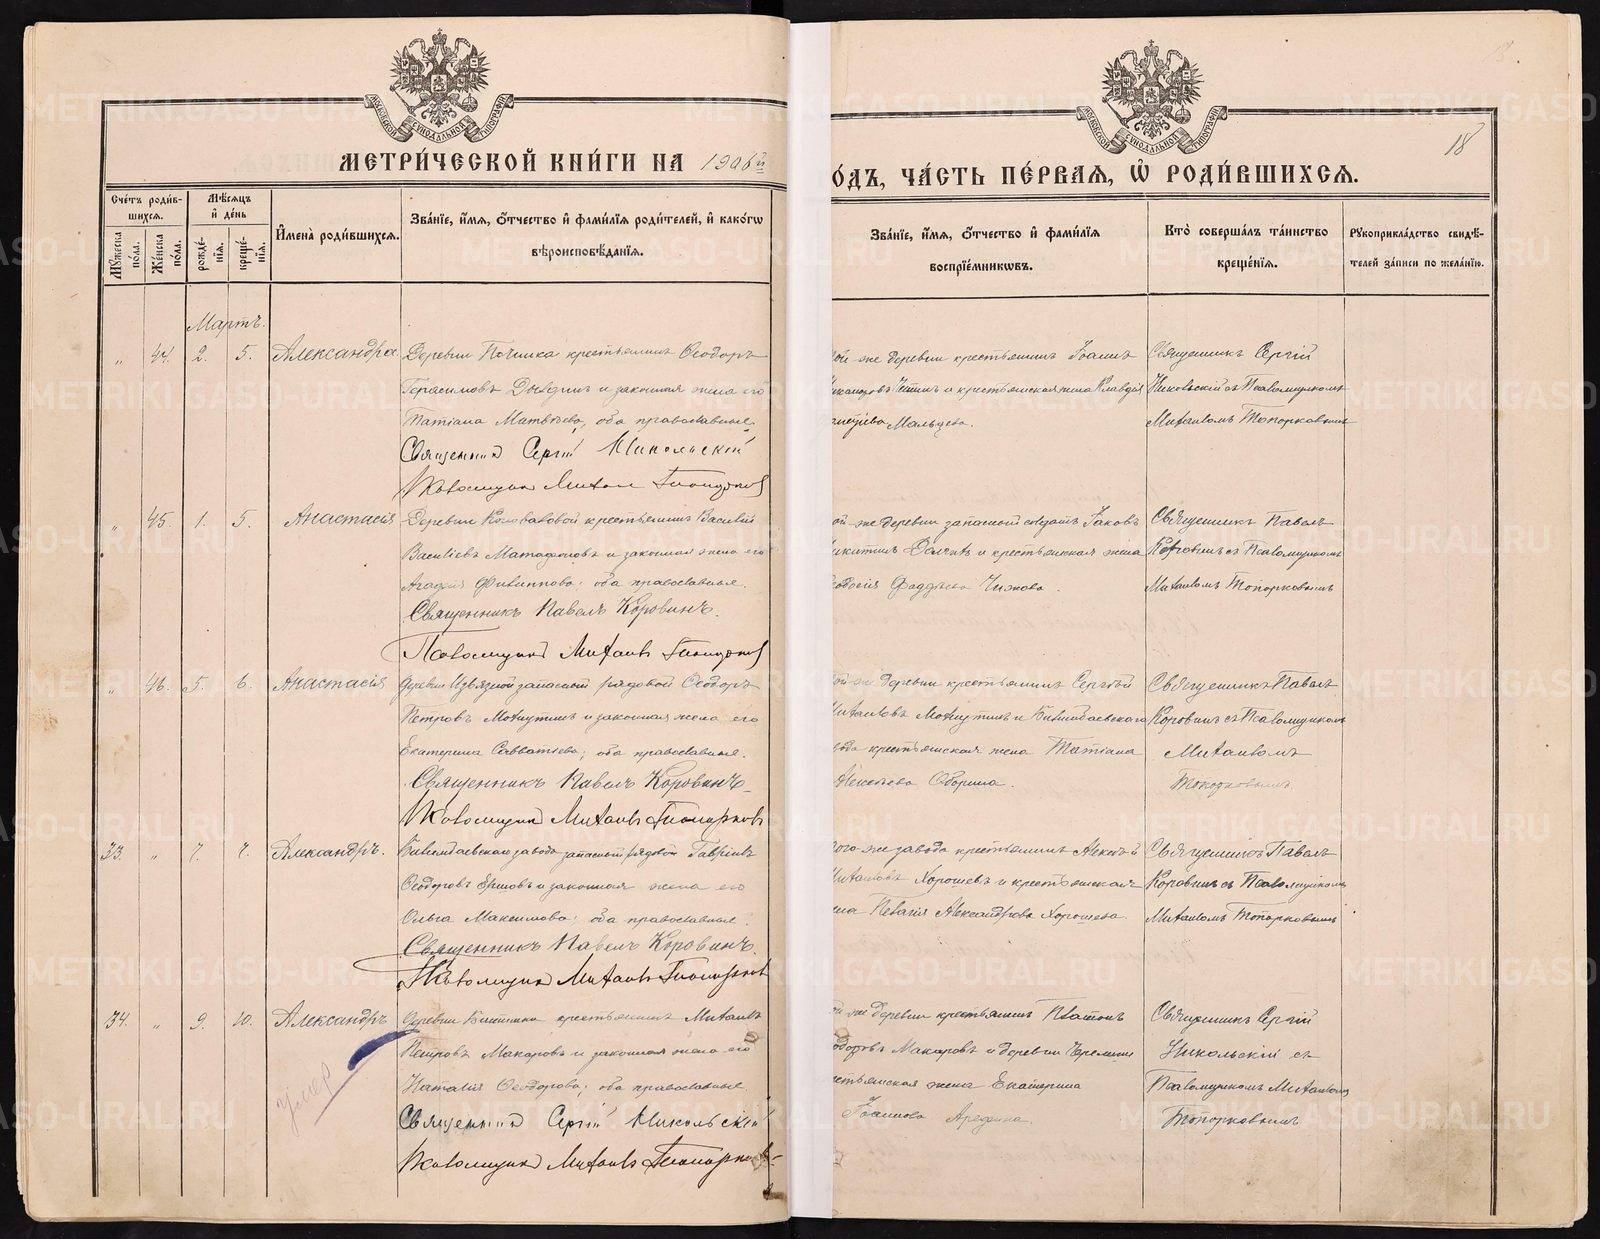 МОСКОВСКОЙ СѴНОДАЛЬНОЙ ТИПОГРАФІИ
МОСКОВСКОЙ СѴНОДАЛЬНОЙ ТИПОГРАФІИ
18
МЕТРИ́ЧЕСКОЙ КНИ́ГИ НА 1906й
ОДЪ, ЧА́СТЬ ПЕ́РВАЯ, Ѡ РОДИ́ВШИХСЯ.
Сче́тъ роди́в-
шихся.
Мѣ́сяцъ
и҆ де́нь
Мꙋ́жеска по́ла.
Же́нска по́ла.
рожде́-
нїя.
креще́-
нїя.
И҆мена̀ роди́вшихся.
Зва́нїе, и҆́мя, ѻ҆́тчество и҆ фамилїя роди́телей, и҆ како́гѡ
вѣроисповѣ́данїя.
Зва́нїе, и҆́мя, ѻ҆́тчество и҆ фами́лїя
воспрїе́мникѡвъ.
Кто̀ соверша́лъ та́инство
креще́нїя.
Рꙋкоприкла́дство свидѣ́-
телей за́писи по жела́нїю.
Мартъ.
„ 44. 2. 5. Александра
Деревни Починка крестьянинъ Ѳеодоръ
Герасимовъ и законная жена его
Татіана Матвѣева, оба православные.
Священник Сергій Никольскій
Псаломщик Михаил Топорков
ой-же деревни крестьянинъ Іоаннъ
и крестьянская жена Клавдія
Мальцева.
Священникъ Сергій
Никольскій съ Псаломщикомъ
Михаиломъ Топорковымъ
„ 45. 1. 5. Анастасія
Деревни Коноваловой крестьянинъ Василій
Васильевъ Матафоновъ и законная жена его
Агафія Филиппова; оба православные.
Священникъ Павелъ Коровинъ.
Псаломщикъ Михаилъ Топорков
ой-же деревни запасной солдатъ Іаковъ
Никитинъ и крестьянская жена
Ѳеодосія Фаддѣева Чижова.
Священникъ Павелъ
Коровинъ съ Псаломщикомъ
Михаиломъ Топорковымъ
„ 46. 5. 6. Анастасія
Деревни Извязной запасной рядовой Ѳеодоръ
Петровъ и законная жена его
Екатерина Савватіева; оба православные.
Священникъ Павелъ Коровинъ
Псаломщикъ Михаилъ Топорковъ
ой-же деревни крестьянинъ Сергѣй
Михаиловъ и Билимбаевскаго
вода крестьянская жена Татіана
Алексѣева Оборина.
Священникъ Павелъ
Коровинъ съ Псаломщикомъ
Михаиломъ
Топорковымъ
33. „ 7. 7. Александръ.
Билимбаевскаго завода запасный рядовой Гавріилъ
Ѳеодоровъ Ершовъ и законная жена его
Ольга Максимова; оба православные
Священникъ Павелъ Коровинъ.
Псаломщикъ Михаилъ Топорков
ого-же завода крестьянинъ Алексѣй
Михаиловъ Хорошевъ и крестьянская
ена Пелагія Александрова Хорошева.
Священникъ Павелъ
Коровинъ съ Псаломщикомъ
Михаиломъ Топорковымъ
34. „ 9. 10. Александръ
Деревни крестьянинъ Михаилъ
Петровъ Макаровъ и законная жена его
Наталія Ѳеодорова; оба православные.
Священник Сергій Никольскій
Псаломщикъ Михаилъ Топорков
умер
ой же деревни крестьянинъ Платонъ
Ѳеодоровъ Макаровъ и деревни Черемши
крестьянская жена Екатерина
Іоаннова
Священникъ Сергій
Никольскій съ
Псаломщикомъ Михаиломъ
Топорковымъ
METRIKI.GASO-URAL.RU